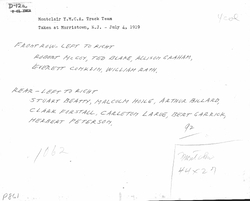 Montclair Y.M.C.A. Track Team
Taken at Morristown, N.J. - July 4, 1918
FRONT ROW LEFT TO RIGHT
ROBERT McCOY, TED BLAKE, ALLISON GRAHAM,
EVERETT, WILLIAM RATH,
REAR - LEFT TO RIGHT
STUART BEATTY, MALCOLM HOILE, ARTHUR BILLARD,
CLARK FORSTALL, CARLETON LARGE, BERT CARRICK,
HERBERT PETERSON.
92
1662
44 x 27
P861